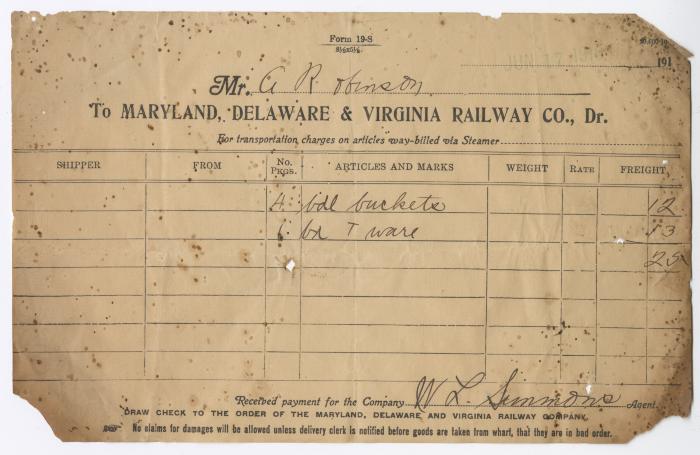 Form 19-S
8½x5½
JUN 17
191
Mr. A Robinson
To MARYLAND, DELAWARE & VIRGINIA RAILWAY CO., Dr.
For transportation charges on articles way-billed via Steamer
SHIPPER FROM No. Pkgs. ARTICLES AND MARKS WEIGHT RATE FREIGHT
4 bdl buckets 12
6 bx T ware 13
25
Received payment for the Company W L Simmons Agent.
DRAW CHECK TO THE ORDER OF THE MARYLAND, DELAWARE AND VIRGINIA RAILWAY COMPANY.
No claims for damages will be allowed unless delivery clerk is notified before goods are taken from wharf, that they are in bad order.